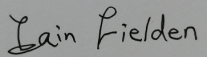 Iain Fielden